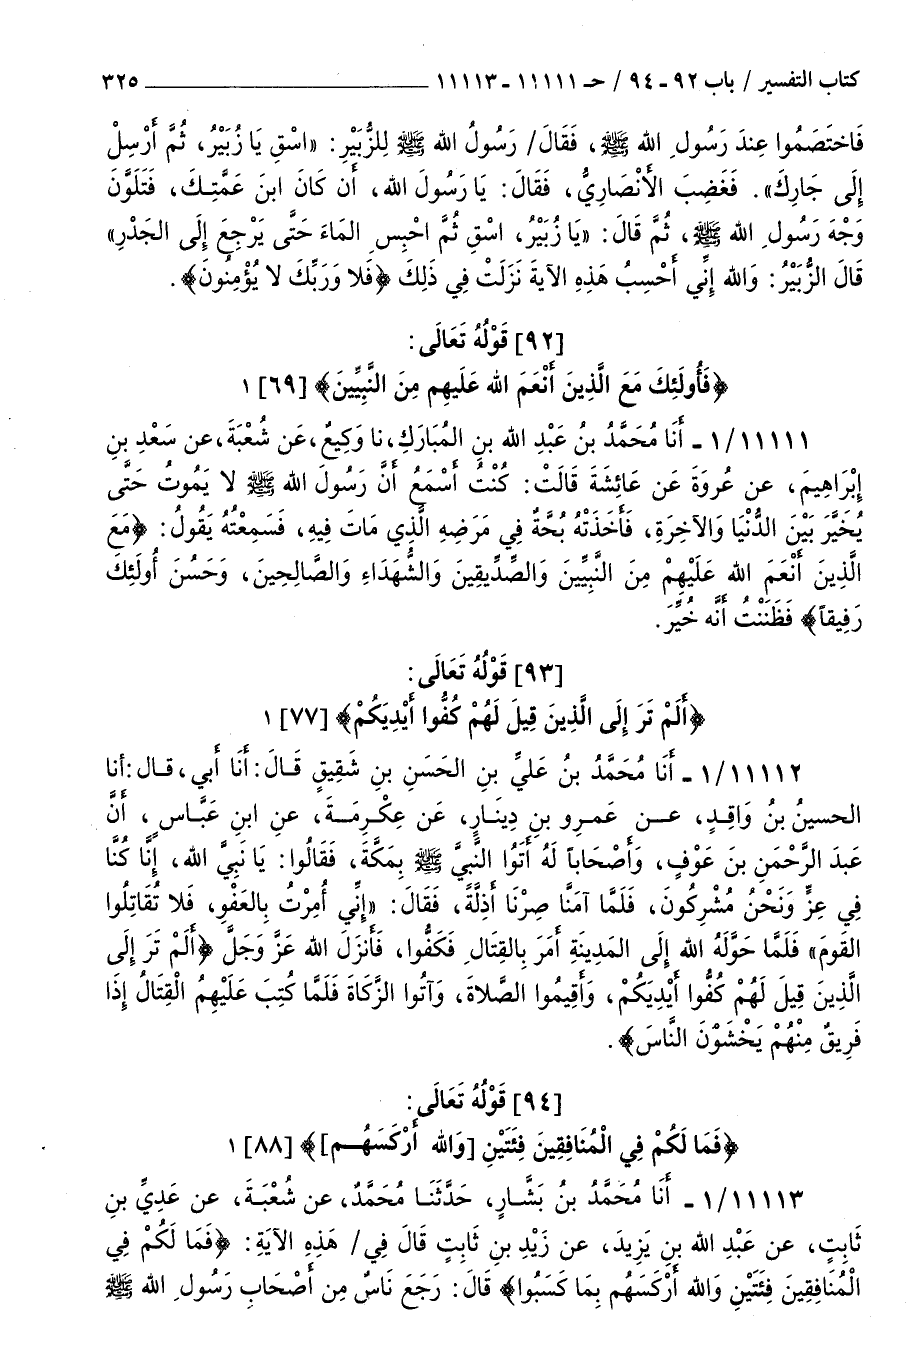 كتاب التفسير / باب ٩٢ - ٩٤ / حـ ١١١١١ - ١١١١٣ ٣٢٥
فَاختَصَمُوا عِندَ رَسُولِ الله ﷺ، فَقَالَ/ رَسُولُ الله ﷺ لِلزُّبَيْرِ: «اسْقِ يَا زُبَيْرُ، ثُمَّ أَرْسِلْ
إِلَى جَارِكَ». فَغَضِبَ الأَنْصَارِيُّ، فَقَالَ: يَا رَسُولَ الله، أَن كَانَ ابنَ عَمَّتِكَ، فَتَلَوَّنَ
وَجْهَ رَسُولِ الله ﷺ، ثُمَّ قَالَ: «يَا زُبَيْرُ، اسْقِ ثُمَّ احْبِسِ المَاءَ حَتَّى يَرْجِعَ إِلَى الجَدْرِ»
قَالَ الزُّبَيْرُ: وَالله إِنِّي أَحْسِبُ هَذِهِ الآيةَ نَزَلَتْ فِي ذَلِكَ ﴿فَلا وَرَبِّكَ لا يُؤْمِنُونَ﴾.
[٩٢] قَوْلُهُ تَعَالَى:
﴿فَأُولَئِكَ مَعَ الَّذِينَ أَنْعَمَ الله عَلَيهِم مِنَ النَّبِيِّينَ﴾ [٦٩] ١
١١١١١/ ١ - أَنَا مُحَمَّدُ بنُ عَبْدِ الله بنِ المُبَارَكِ، نا وَكِيعٌ، عَن شُعْبَةَ، عن سَعْدِ بنِ
إِبْرَاهِيمَ، عن عُروَةَ عَن عَائِشَةَ قَالَتْ: كُنْتُ أَسْمَعُ أَنَّ رَسُولَ الله ﷺ لا يَمُوتُ حَتَّى
يُخَيَّرَ بَيْنَ الدُّنْيَا وَالآخِرَةِ، فَأَخَذَتْهُ بُحَّةٌ فِي مَرَضِهِ الَّذِي مَاتَ فِيهِ، فَسَمِعْتُهُ يَقُولُ: ﴿مَعَ
الَّذِينَ أَنْعَمَ الله عَلَيْهِمْ مِنَ النَّبِيِّينَ وَالصِّدِّيقِينَ وَالشُّهَدَاءِ وَالصَّالِحِينَ، وَحَسُنَ أُولَئِكَ
رَفِيقاً﴾ فَظَنَنْتُ أَنَّه خُيِّرَ.
[٩٣] قَوْلُهُ تَعَالَى:
﴿أَلَمْ تَرَ إِلَى الَّذِينَ قِيلَ لَهُمْ كُفُّوا أَيْدِيَكُمْ﴾ [٧٧] ١
١١١١٢/ ١ - أَنَا مُحَمَّدُ بنُ عَليِّ بنِ الحَسَنِ بنِ شَقِيقٍ قَالَ: أَنَا أَبي، قال: أنا
الحسينُ بنُ وَاقِدٍ، عن عَمرِو بنِ دِينَارٍ، عَن عِكْرِمَةَ، عنِ ابنِ عَبَّاسٍ، أَنَّ
عَبدَ الرَّحْمَنِ بنَ عَوْفٍ، وَأَصْحَاباً لَهُ أَتَوُا النَّبِيَّ ﷺ بِمَكَّةَ، فَقَالُوا: يَا نَبِيَّ الله، إِنَّا كُنَّا
فِي عِزٍّ وَنَحْنُ مُشْرِكُونَ، فَلَمَّا آمَنَّا صِرْنَا أَذِلَّةً، فَقَالَ: «إِنِّي أُمِرْتُ بِالعَفْوِ، فَلا تُقَاتِلُوا
القَومَ» فَلَمَّا حَوَّلَهُ الله إِلَى المَدِينَةِ أَمَرَ بِالقِتَالِ فَكَفُّوا، فَأَنزَلَ الله عَزَّ وَجَلَّ ﴿أَلَمْ تَرَ إِلَى
الَّذِينَ قِيلَ لَهُمْ كُفُّوا أَيْدِيَكُمْ، وَأَقِيمُوا الصَّلاةَ، وَآتُوا الزَّكَاةَ فَلَمَّا كُتِبَ عَلَيْهِمُ الْقِتَالُ إِذَا
فَرِيقٌ مِنْهُمْ يَخْشَوْنَ النَّاسَ﴾.
[٩٤] قَوْلُهُ تَعَالَى:
﴿فَمَا لَكُمْ فِي الْمُنَافِقِينَ فِئَتَيْنِ [وَالله أَرْكَسَهُم]﴾ [٨٨] ١
١١١١٣/ ١ - أَنَا مُحَمَّدُ بنُ بَشَّارٍ، حَدَّثَنَا مُحَمَّدٌ، عن شُعْبَةَ، عن عَدِيِّ بنِ
ثَابِتٍ، عن عَبْدِ الله بنِ يَزِيدَ، عن زَيْدِ بنِ ثَابِتٍ قَالَ فِي/ هَذِهِ الآيَةِ: ﴿فَمَا لَكُمْ فِي
الْمُنَافِقِينَ فِئَتَيْنِ وَالله أَرْكَسَهُم بِمَا كَسَبُوا﴾ قَالَ: رَجَعَ نَاسٌ مِن أَصْحَابِ رَسُولِ الله ﷺ